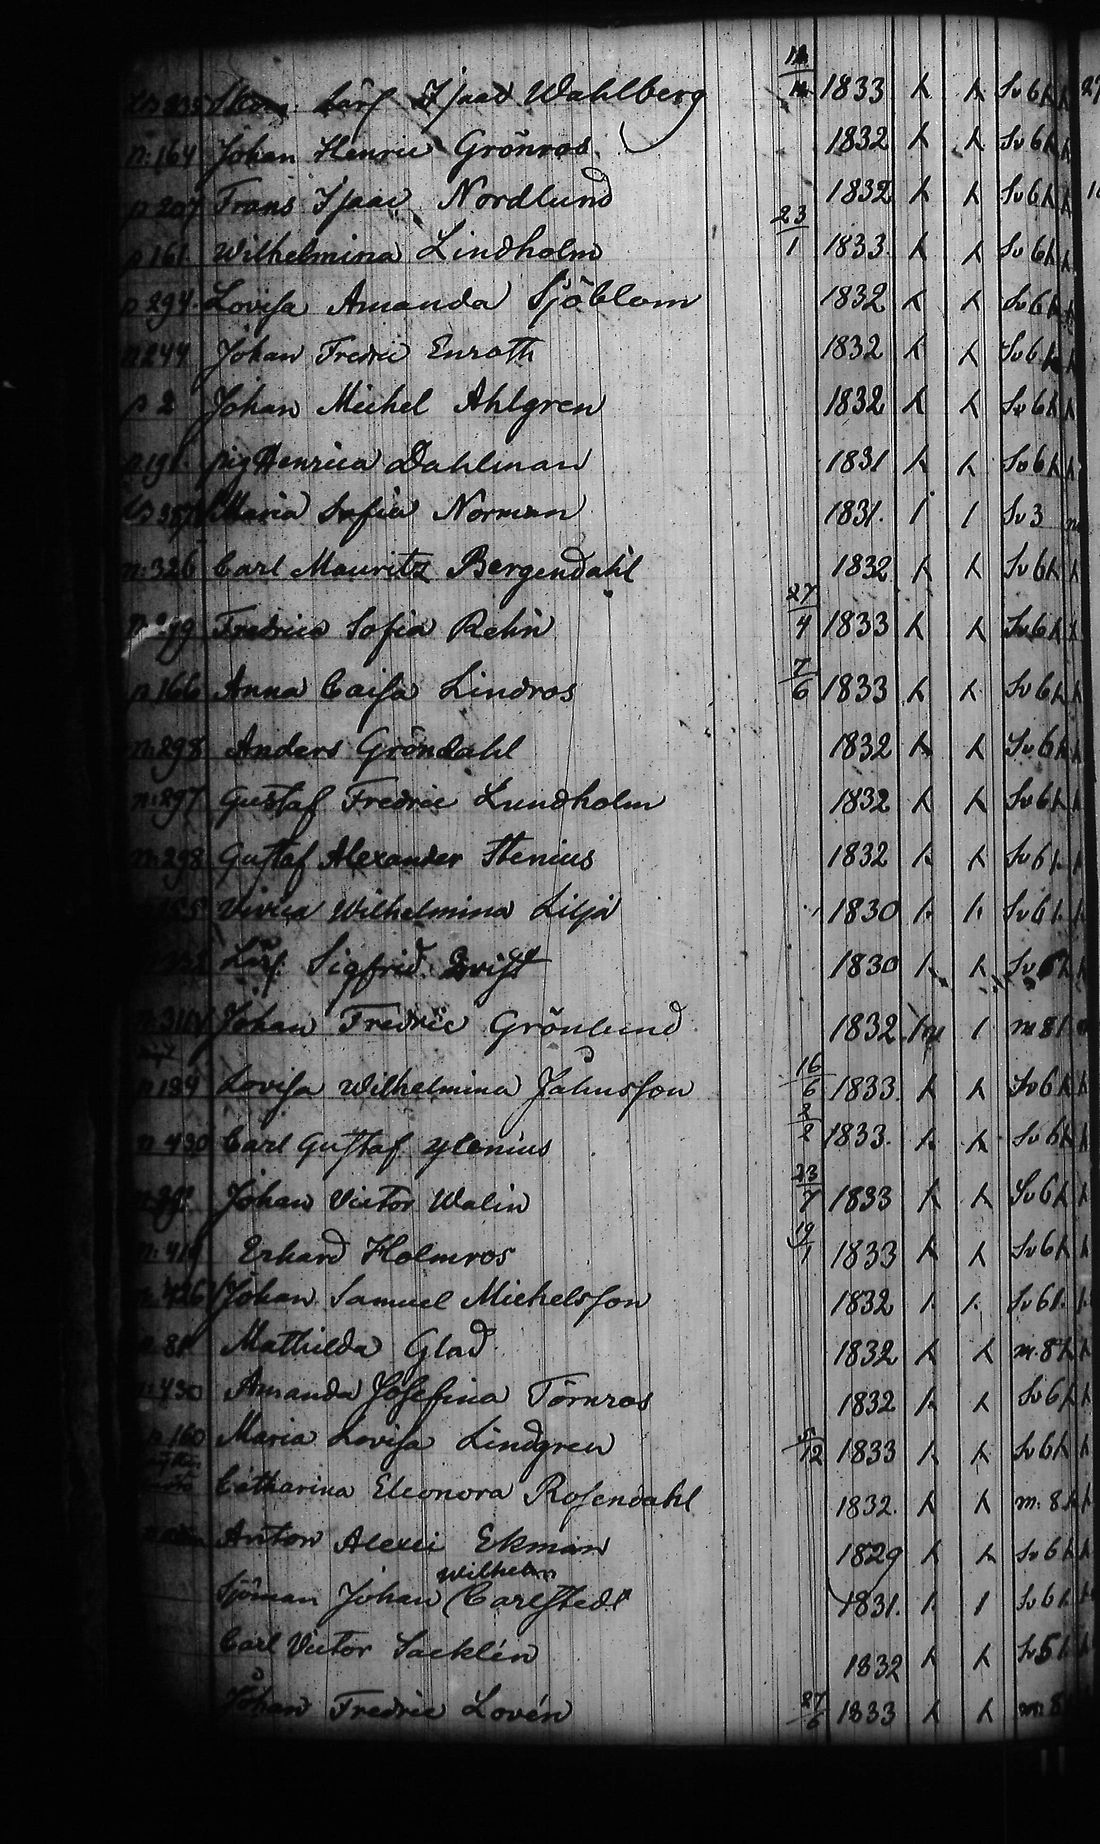 Lärl Isaac Wahlberg 1833 h h Sv 6 h h
n: 164 Johan Henric Grönroos 1832 h h Sv 6 h h
p 207 Frans Isaac Nordlund 1832 h h Sv 6 h h
p 161 Wilhelmina Lindholm 23/1 1833 h h Sv 6 h h
p 294 Lovisa Amanda Sjöblom 1832 h h Sv 6 h h
n 244 Johan Fredric Enroth 1832 h h Sv 6 h h
p 2 Johan Michel Ahlgren 1832 h h Sv 6 h h
pig Henrica Dahlman 1831 h h Sv 6 h h
Maria Sofia Norman 1831. 1 1 Sv 3
n: 326 Carl Mauritz Bergendahl 1832 h h Sv 6 h h
Fredrica Sofia Rehn 27/4 1833 h h Sv 6 h
p 166 Anna Caisa Lindros 7/6 1833 h h Sv 6 h h
n: 298 Anders Gröndahl 1832 h h Sv 6 h h
n: 297 Gustaf Fredric Lundholm 1832 h h Sv 6 h h
n: 298 Gustaf Alexander Stenius 1832 h h Sv 6 h
Vivica Wilhelmina Lilja 1830 h h Sv 6
Lärl. Sigfrid Qvist 1830 h h Sv
Johan Fredric Grönlund 1832 1 m 8
p 139 Lovisa Wilhelmina Jahnsson 16/6 1833 h h Sv 6 h h
n. 430 Carl Gustaf Ylenius 2/2 1833. h h Sv 6 h h
Johan Victor Walin 23/7 1833 h h Sv 6 h h
n: 419 Erhard Holmros 19/1 1833 h h Sv 6 h h
n: 426 Johan Samuel Michelsson 1832 h h Sv 6
p. 81 Mathilda Glad 1832 h h m. 8 h h
n: 430 Amanda Josefina Törnros 1832 h h Sv 6 h h
p 160 Maria Lovisa Lindgren 5/12 1833 h h Sv 6 h h
Catharina Eleonora Rosendahl 1832. h h m. 8 h h
Anton Alexei Ekman 1829 h h Sv 6 h h
Wilhelm
Sjöman Johan Carlstedt 1831. 1 1 Sv 6
Carl Victor Sacklén 1832 h h Sv 5
Johan Fredric Lovén 27/6 1833 h h m 8